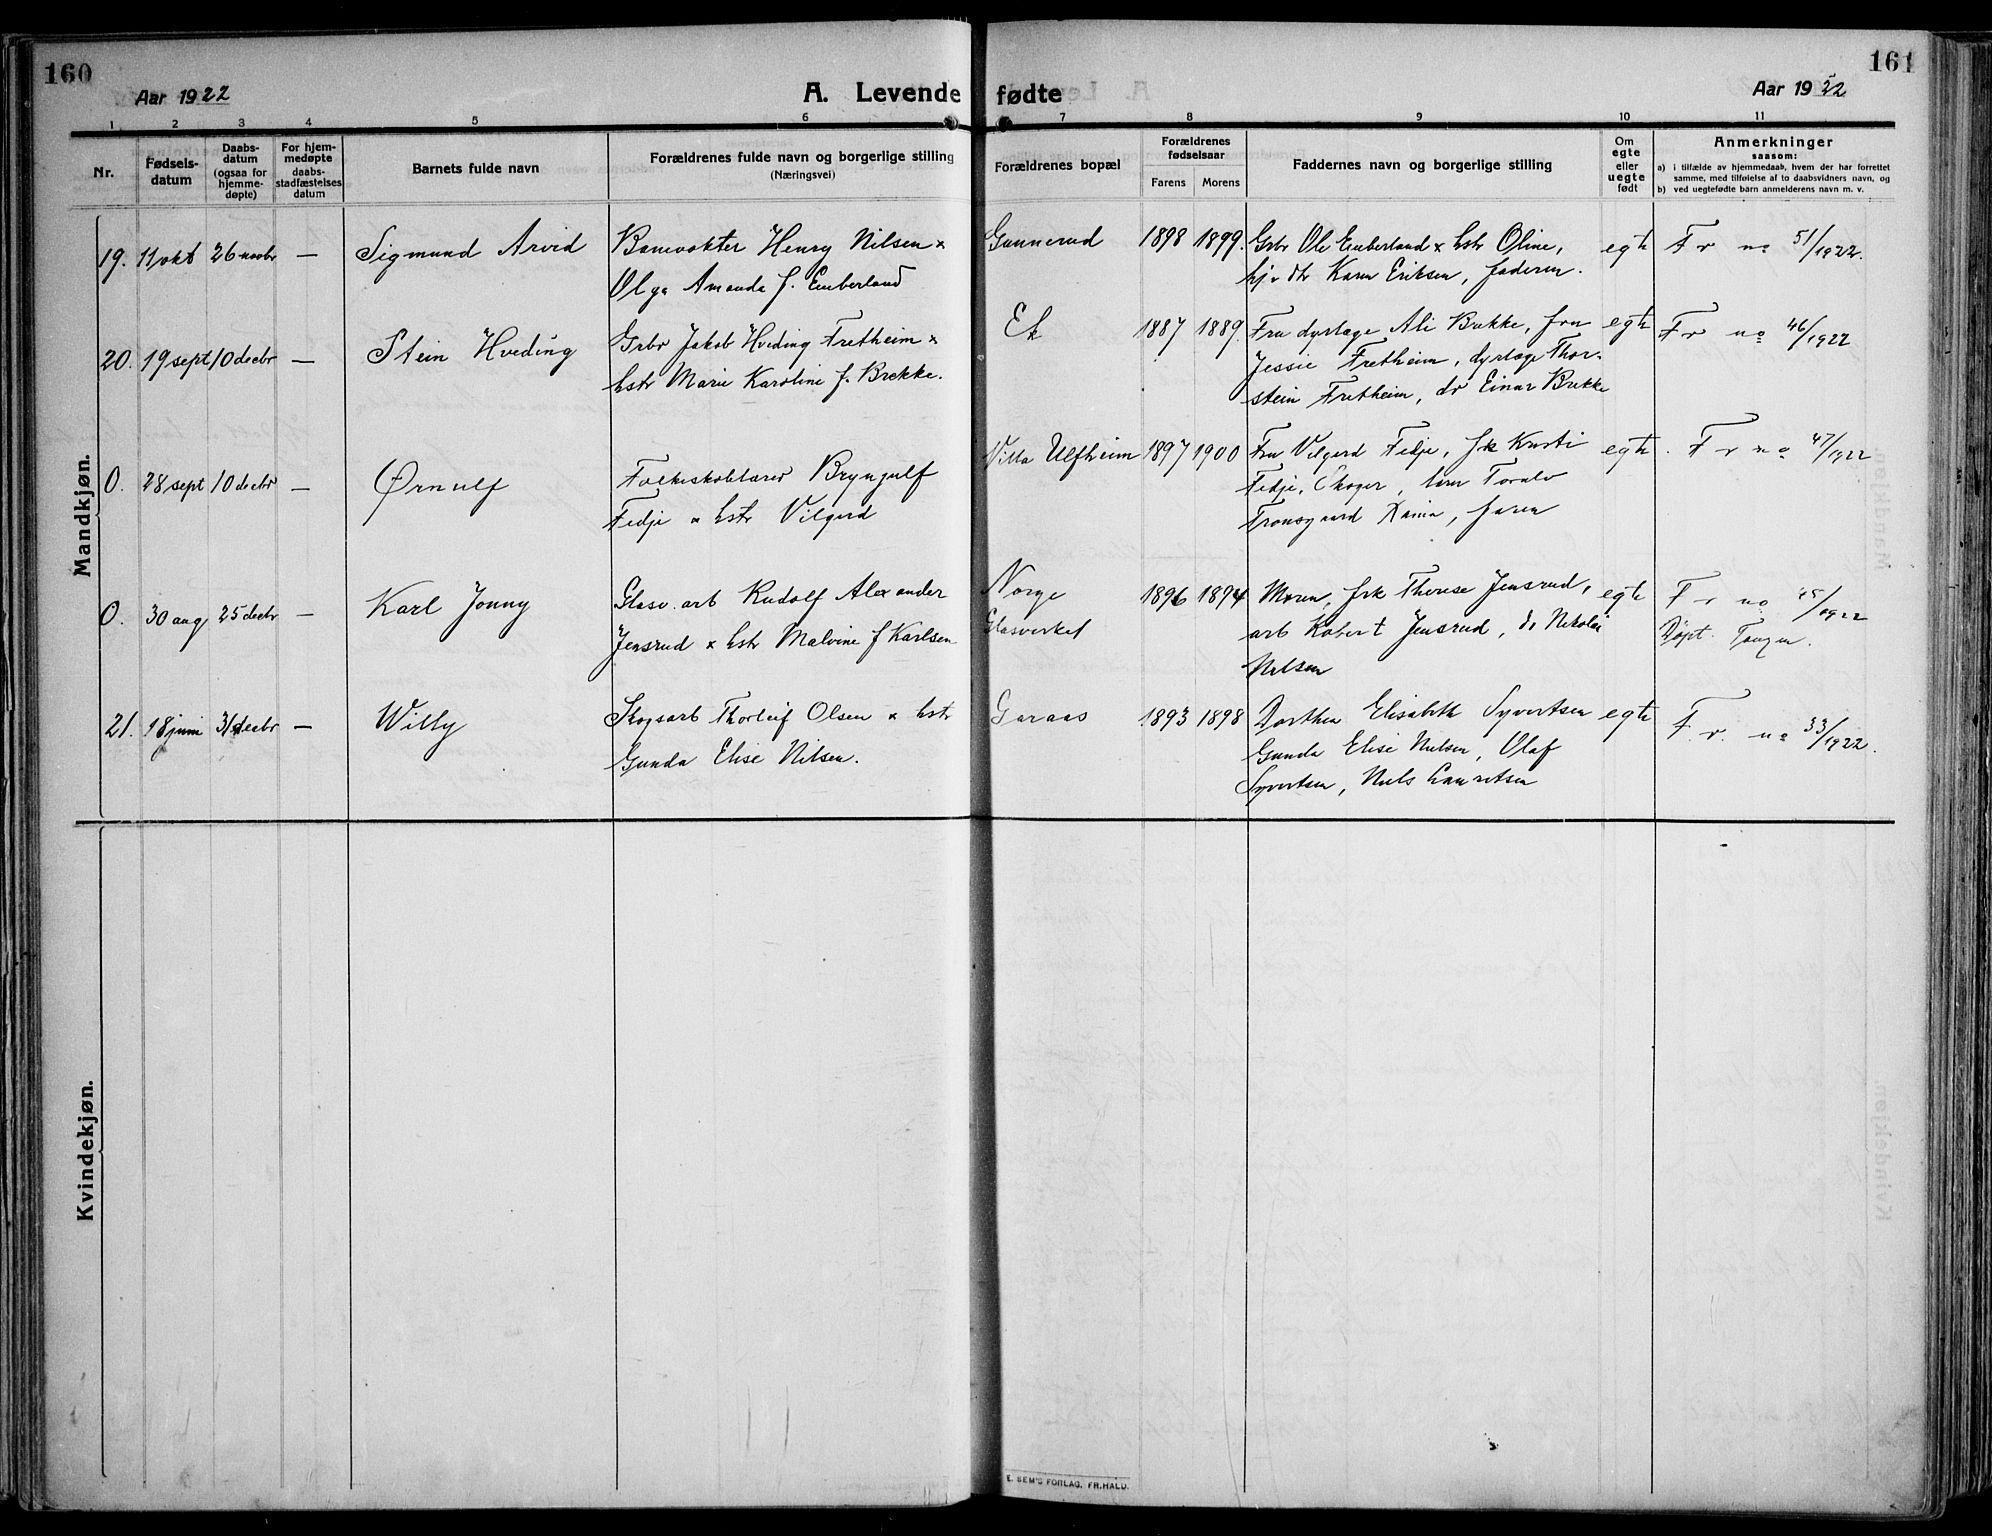 160
161
Aar 1922
A. Levende fødte
Aar 1922
1 2 3 4 5 6 7 8 9 10 11
Nr.
Fødsels-
datum
Daabs-
datum
(ogsaa for
hjemme-
døpte)
For hjem-
medøpte
daabs-
stadfæstelses
datum
Barnets fulde navn
Forældrenes fulde navn og borgerlige stilling
(Næringsvei)
Forældrenes bopæl
Forældrenes
fødselsaar
Farens Morens
Faddernes navn og borgerlige stilling
Om
egte
eller
uegte
født
Anmerkninger
saasom:
a) i tilfælde av hjemmedaab, hvem der har forrettet
samme, med tilføielse af to daabsvidners navn, og
b) ved uegtefødte barn anmelderens navn m. v.
Mandkjøn.
19. 11 okt 26 novbr — Sigmund Arvid
Banevokter Henry Nilsen x
Olga Amanda f. Emberland
Gunnerud 1898 1899.
Grbr Ole Emberland x hstr Oline,
hj.v dtr Karen Eriksen, faderen.
egte
F r no 51/1922.
20. 19 sept 10 decbr — Stein Hveding
Grbr Jakob Hveding Fretheim x
hstr Marie Karoline f. Brekke.
Ek 1887 1889.
Fru dyrlæge Ali Brekke, fru
Jessie Fretheim, dyrlæge Thor-
stein Fretheim, dr Einar Brekke
egte
F r no 46/1922
0. 28 sept 10 decbr — Ørnulf
Folkeskolelærer Bryngulf
Fedje x hstr Vilgerd
Villa Ulfheim 1897 1900
Fru Vilgerd Fedje, frk Kristi
Fedje, Skoger, lærer Toralv
Tronsgaard, faren
egte.
F r no 47/1922
0. 30 aug 25 decbr — Karl Jonny
Glasv. arb Rudolf Alexander
Jensrud x hstr Malvine f Karlsen
Norge
Glasverket
1896 1894
Moren, frk Therese Jensrud,
arb Robert Jensrud, do Nikolai
Nilsen
egte
F r no 45/1922
Døpt Tangen.
21. 18 juni 31 decbr — Willy
Skogsarb Thorleif Olsen x hstr
Gunda Elise Nilsen.
Garaas 1893 1898
Dorthea Elisabeth Syvertsen
Gunda Elise Nielsen, Olaf
Syvertsen, Niels Lauritsen
egte
F. r. no 33/1922.
Kvindekjøn.
E. SEM'S FORLAG, FR.HALD.